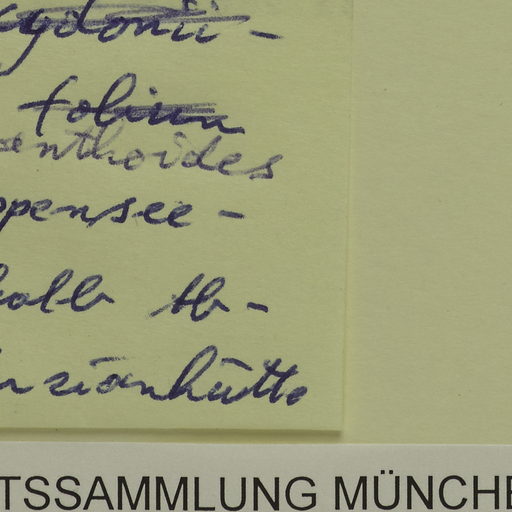 cydonii-
folium
anthoides
ppensee-
halb Ab-
nzianhütte
TSSAMMLUNG MÜNCHE